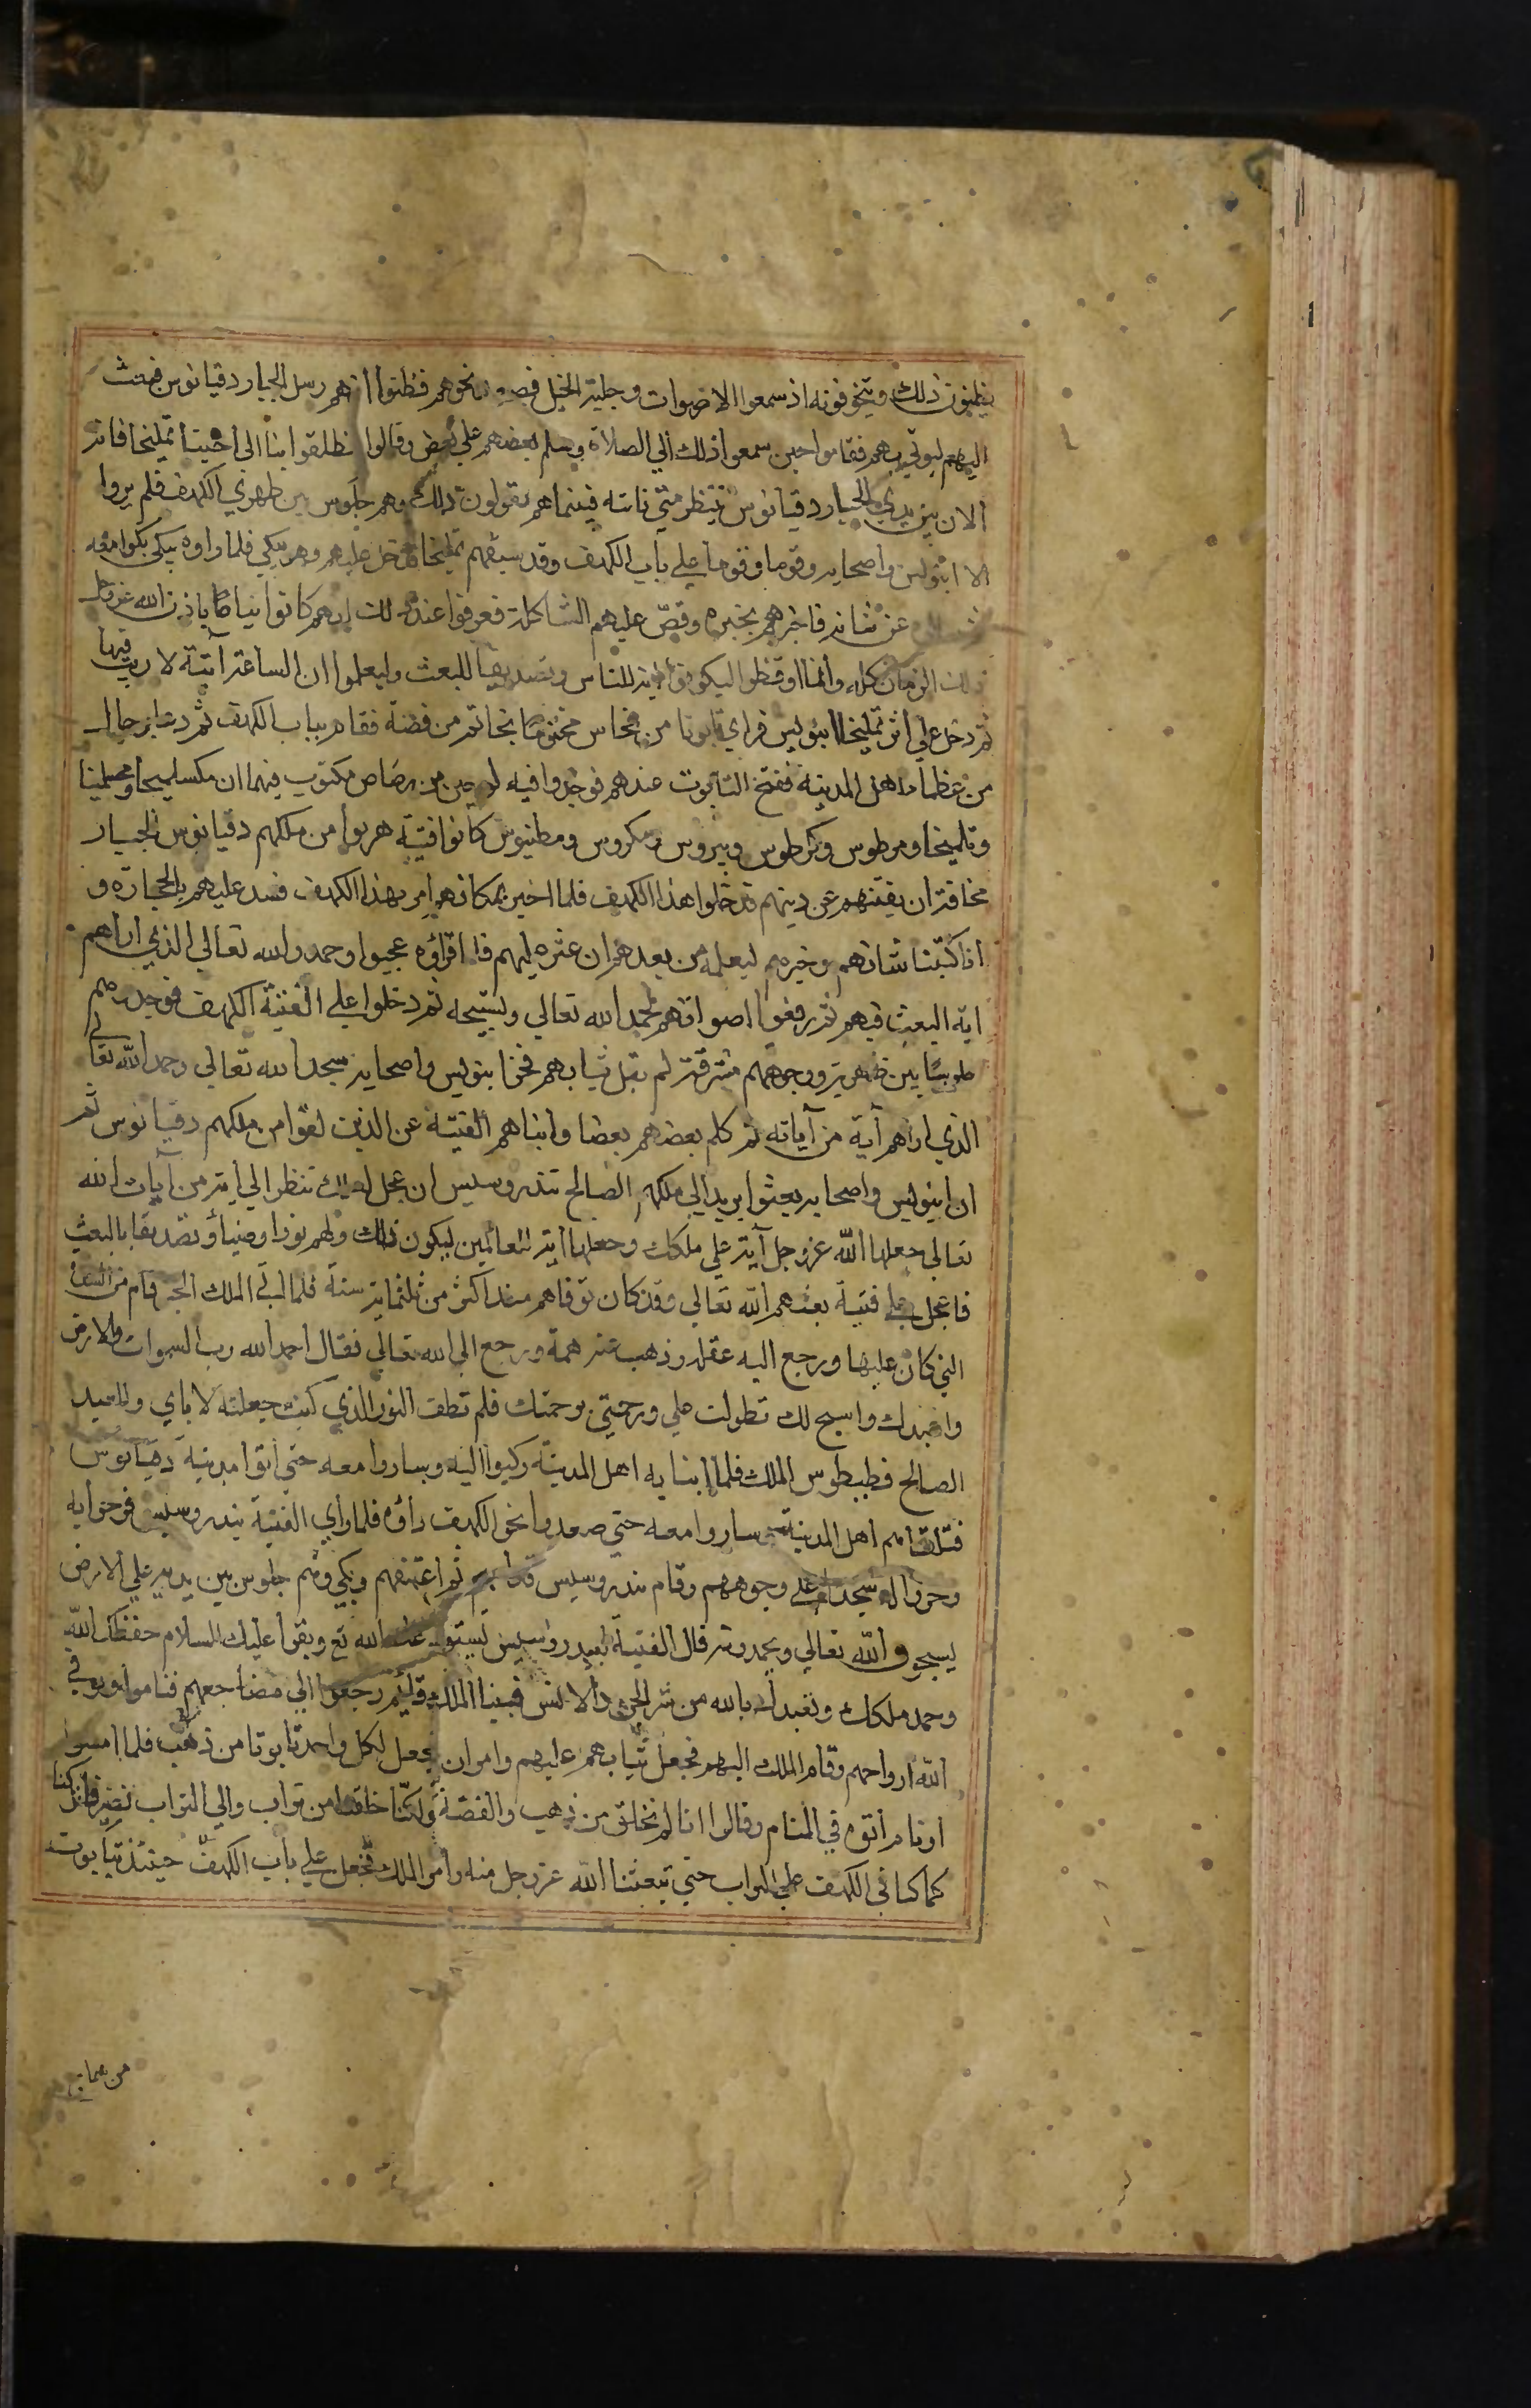 يظنون ذلك ويتخوفونه اذ سمعوا الاصوات وجلبة الخيل نحوهم فظنوا انهم رسل الجبار دقيانوس بعث
اليهم ليوتي بهم فقاموا حين سمعوا ذلك الي الصلاة وسلم بعضهم علي بعض وقالوا انطلقوا بنا الى اخينا تمليخا فانه
الان بين يدي الجبار دقيانوس ينتظر متي ناته فبينماهم يقولون ذلك وهم جلوس بين ظهري الكهف فلم يروا
الا واصحابه وقوما وقوفا علي باب الكهف وقد سبقهم تمليخا فدخل عليهم وهو يبكي فلما راوه يبكي بكوا معه
عن شانه فاخبرهم بخبره وقص عليهم فعرفوا عند ذلك انهم كانوا نياما باذن الله عز وجل
ذلك الزمان كله وانما اوقظوا ليكونوا اية للناس وتصديقا للبعث وليعلموا ان الساعة آتية لا ريب فيها
ثم دخل علي اثر تمليخا فراي تابوتا من نحاس مختوما بخاتم من فضة فقام بباب الكهف ثم دعا رجالا
من عظماء اهل المدينة ففتح التابوت عندهم فوجدوا فيه لوحين من رصاص مكتوب فيهما ان مكسلمينا ومحسلمينا
وتلميخا ومرطوس وكرطوس وبيروس ومكروس ومطنيوس كانوا فتية هربوا من ملكهم دقيانوس الجبار
مخافة ان يفتنهم عن دينهم فدخلوا هذا الكهف فلما اخبر بمكانهم امر بهذا الكهف فسد عليهم بالحجارة و
انا كتبنا شانهم وخبرهم ليعلمه من بعدهم ان عثر عليهم فلما قراوه عجبوا وحمدوا الله تعالي الذي اراهم
اية البعث فيهم ثم رفعوا اصواتهم بحمد الله تعالي وتسبيحه ثم دخلوا علي الفتية الكهف فوجدوهم
جلوسا بين ظهريه ووجوههم مشرقة لم تبل ثيابهم فخر واصحابه سجدا لله تعالي وحمدوا الله تعالي
الذي اراهم آية من آياته ثم كلم بعضهم بعضا وانباهم الفتية عن الذين لقوا من ملكهم دقيانوس ثم
ان واصحابه بعثوا بريدا الي ملكهم الصالح تندروسيس ان عجل لعلك تنظر الي اية من آيات الله
تعالي جعلها الله عز وجل آية علي ملكك وجعلها اية للعالمين ليكون ذلك ولهم نورا وضياء وتصديقا بالبعث
فاعجل علي فتية بعثهم الله تعالي وقد كان توفاهم منذ اكثر من ثلثماية سنة فلما اتي الملك الخبر قام من
التي كان عليها ورجع اليه عقله وذهب عنه همه ورجع الي الله تعالي فقال احمد الله رب السموات والارض
واعبدك واسبح لك تطولت علي ورحمتني برحمتك فلم تطف النور الذي كنت جعلته لاباي والعبد
الصالح فطيطوس الملك فلما انبا به اهل المدينة ركبوا اليه وساروا معه حتي اتوا مدينة دقيانوس
فتلقاهم اهل المدينة وساروا معه حتي صعدوا نحو الكهف فلما راي الفتية تندروسيس فرحوا به
وخروا له سجدا علي وجوههم وقام تندروسيس قدامهم ثم اعتنقهم وبكي وهم جلوس بين يديه علي الارض
يسبحون الله تعالي ويحمدونه ثم قال الفتية لتندروسيس نستودعك الله تع ونقرا عليك السلام حفظك الله
وحمد ملكك ونعيذك بالله من شر الجن والانس فبينا الملك قائم رجعوا الي مضاجعهم فناموا وتوفي
الله ارواحهم وقام الملك اليهم فجعل ثيابهم عليهم وامر ان يجعل لكل واحد تابوتا من ذهب فلما امسوا
ونام اتوه في المنام وقالوا انا لم نخلق من ذهب والفضة ولكنا خلقنا من تراب والي التراب نصير فاتركنا
كما كنا في الكهف علي التراب حتي تبعثنا الله عز وجل منه وامر الملك فجعل علي باب الكهف حينئذ تابوت